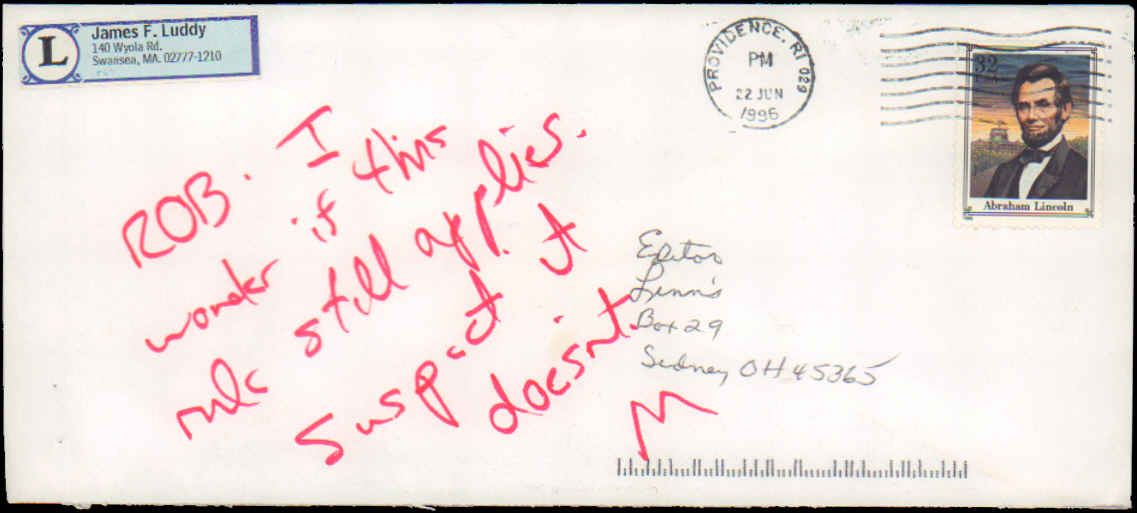 L
James F. Luddy
140 Wyola Rd.
Swansea, MA. 02777-1210
PROVIDENCE, RI 029
PM
22 JUN
1996
32
Abraham Lincoln
ROB. I
wonder if this
rule still applies.
suspect it
doesn't.
M
Editor
Linn's
Box 29
Sidney OH 45365